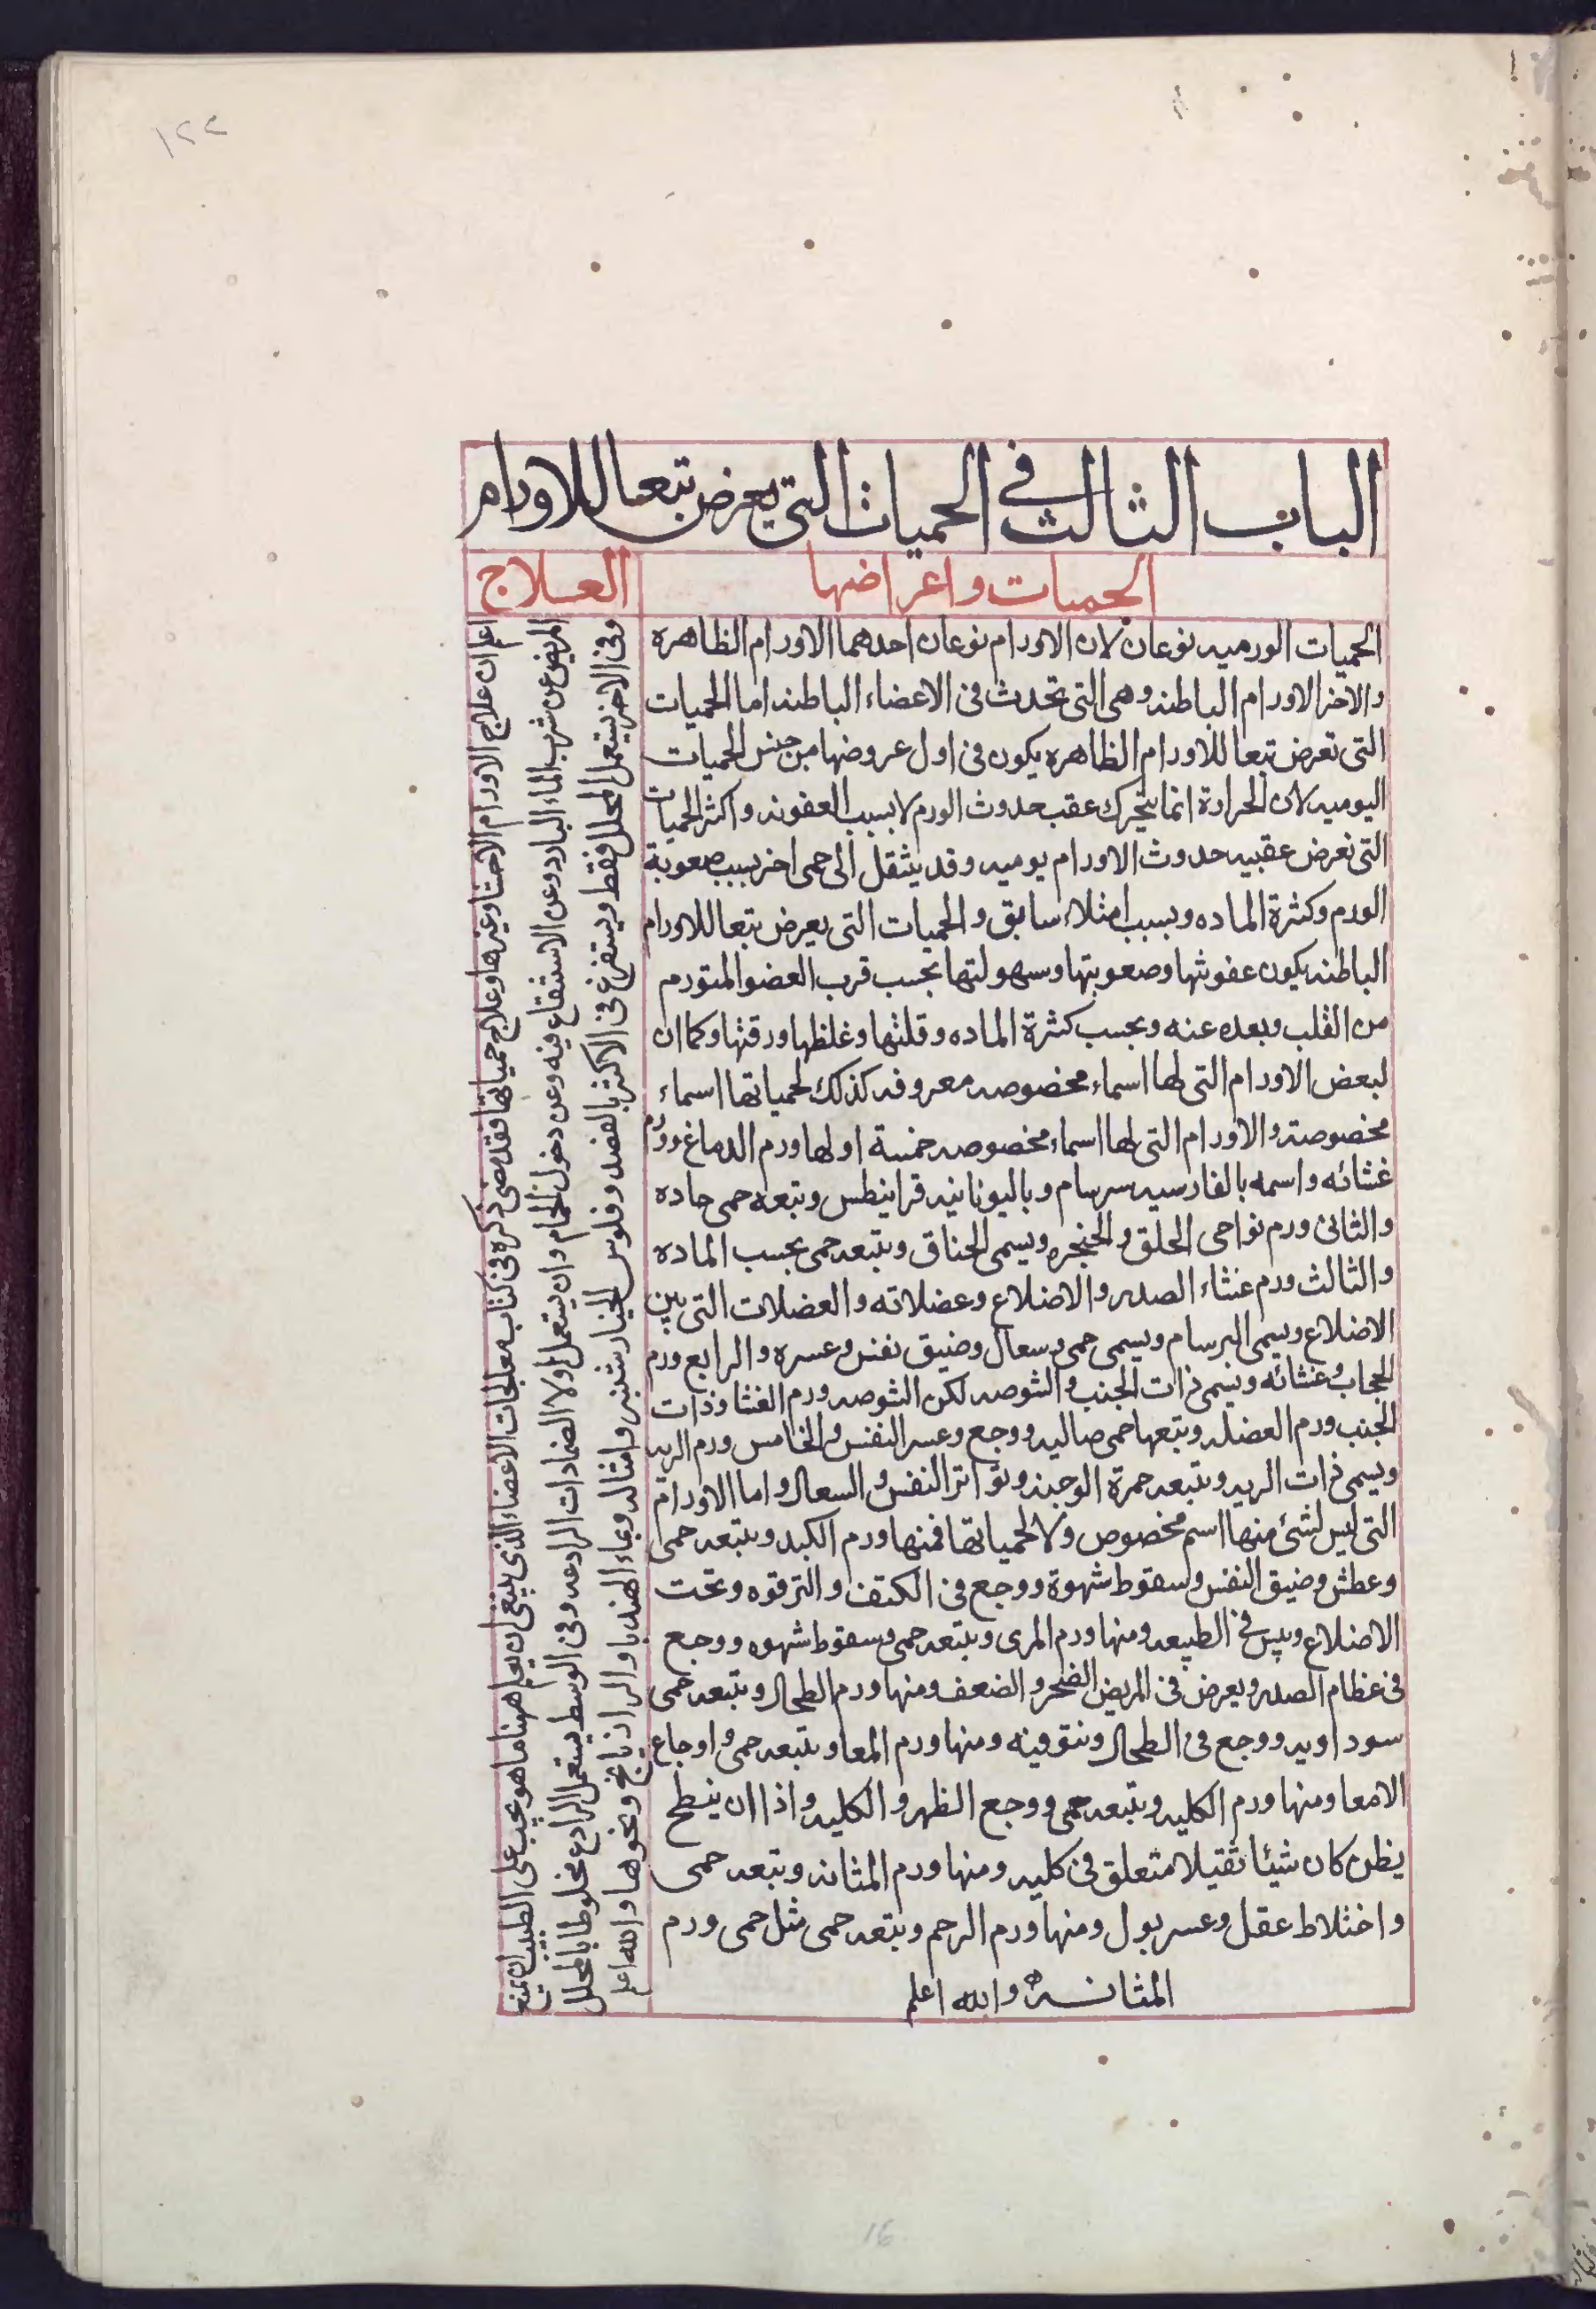 ١٢٢
الباب الثالث في الحميات التي يعرض تبعا للاورام
الحميات واعراضها
العلاج
الحميات الورميه نوعان لان الاورام نوعان احدهما الاورام الظاهره
والاخر الاورام الباطنه وهى التى تحدث فى الاعضاء الباطنه اما الحميات
التى تعرض تبعا للاورام الظاهره يكون فى اول عروضها من جنس الحميات
اليوميه لان الحرارة انما يتحرك عقب حدوث الورم لا بسبب العفونه واكثر الحميات
التى تعرض عقيبه حدوث الاورام يوميه وقد ينتقل الى حمى اخر بسبب صعوبة
الورم وكثرة الماده وبسبب امتلاء سابق والحميات التى يعرض تبعا للاورام
الباطنه يكون عفونتها وصعوبتها وسهولتها بحسب قرب العضو المتورم
من القلب وبعده عنه وبحسب كثرة الماده وقلتها وغلظها ورقتها وكما ان
لبعض الاورام التى لها اسماء مخصوصه معروفه كذلك لحمياتها اسماء
مخصوصة والاورام التى لها اسماء مخصوصه خمسة اولها ورم الدماغ وورم
غشائه واسمه بالفارسيه سرسام وباليونانيه قرانيطس وبتعه حمى حاده
والثانى ورم نواحى الحلق والحنجره ويسمى الخناق ويتبعه حمى بحسب الماده
والثالث ورم غشاء الصدر والاضلاع وعضلاته والعضلات التى بين
الاضلاع ويسمى البرسام ويسمى حمى وسعال وضيق نفس وعسره والرابع ورم
الحجاب وغشائه ويسمى ذات الجنب والشوصه لكن الشوصه ورم الغشا وذات
الجنب ورم العضله ويتبعها حمى صاليه ووجع وعسر النفس والخامس ورم الريه
ويسمى ذات الريه ويتبعه حمرة الوجنه وتواتر النفس والسعال واما الاورام
التى ليس لشئ منها اسم مخصوص ولا لحمياتها فمنها ورم الكبد ويتبعه حمى
وعطش وضيق النفس وسقوط شهوة ووجع فى الكتف والترقوه وتحت
الاضلاع ويبس فى الطبيعه ومنها ورم المرى ويتبعه حمى وسقوط شهوه ووجع
فى عظام الصدر ويعرض فى المريض الضجر والضعف ومنها ورم الطحال ويتبعه حمى
سوداويه ووجع فى الطحال ونتو فيه ومنها ورم المعا ويتبعه حمى واوجاع
الامعا ومنها ورم الكليه ويتبعه حمى ووجع الظهر والكليه واذا ان ينبطح
يظن كان شيئا ثقيلا متعلق فى كليه ومنها ورم المثانه وبتعه حمى
واختلاط عقل وعسر بول ومنها ورم الرحم وبتعه حمى مثل حمى ورم
المثانه والله اعلم
اعلم ان علاج الاورام الاحشا وغيرها وعلاج حمياتها فقد مضى ذكره فى كتاب معالجات الاعضاء الذى ينبغى ان يعلم ههنا ما هو يجب على الطبيب ان يمنع
المريض عن شرب الماء البارد وعن الاستنقاع فيه وعن دخول الحمام وان يستعمل اولا الضمادات الرادعه وفى الوسط يستعمل الرادع مخلوطا بالمحلل
وفى الاخر يستعمل المحلل فقط ويستفرغ فى الاكثر بالفصد وفلوس الخيار شنبر وامثاله وبماء الهندبا والرازيانج ونحوها والله اعلم
16